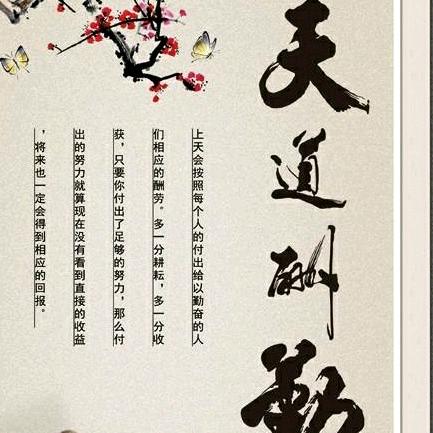 天道酬勤
上天会按照每个人的付出给以勤奋的人
们相应的酬劳。多一分耕耘，多一分收
获，只要你付出了足够的努力，那么付
出的努力就算现在没有看到直接的收益
，将来也一定会得到相应的回报。